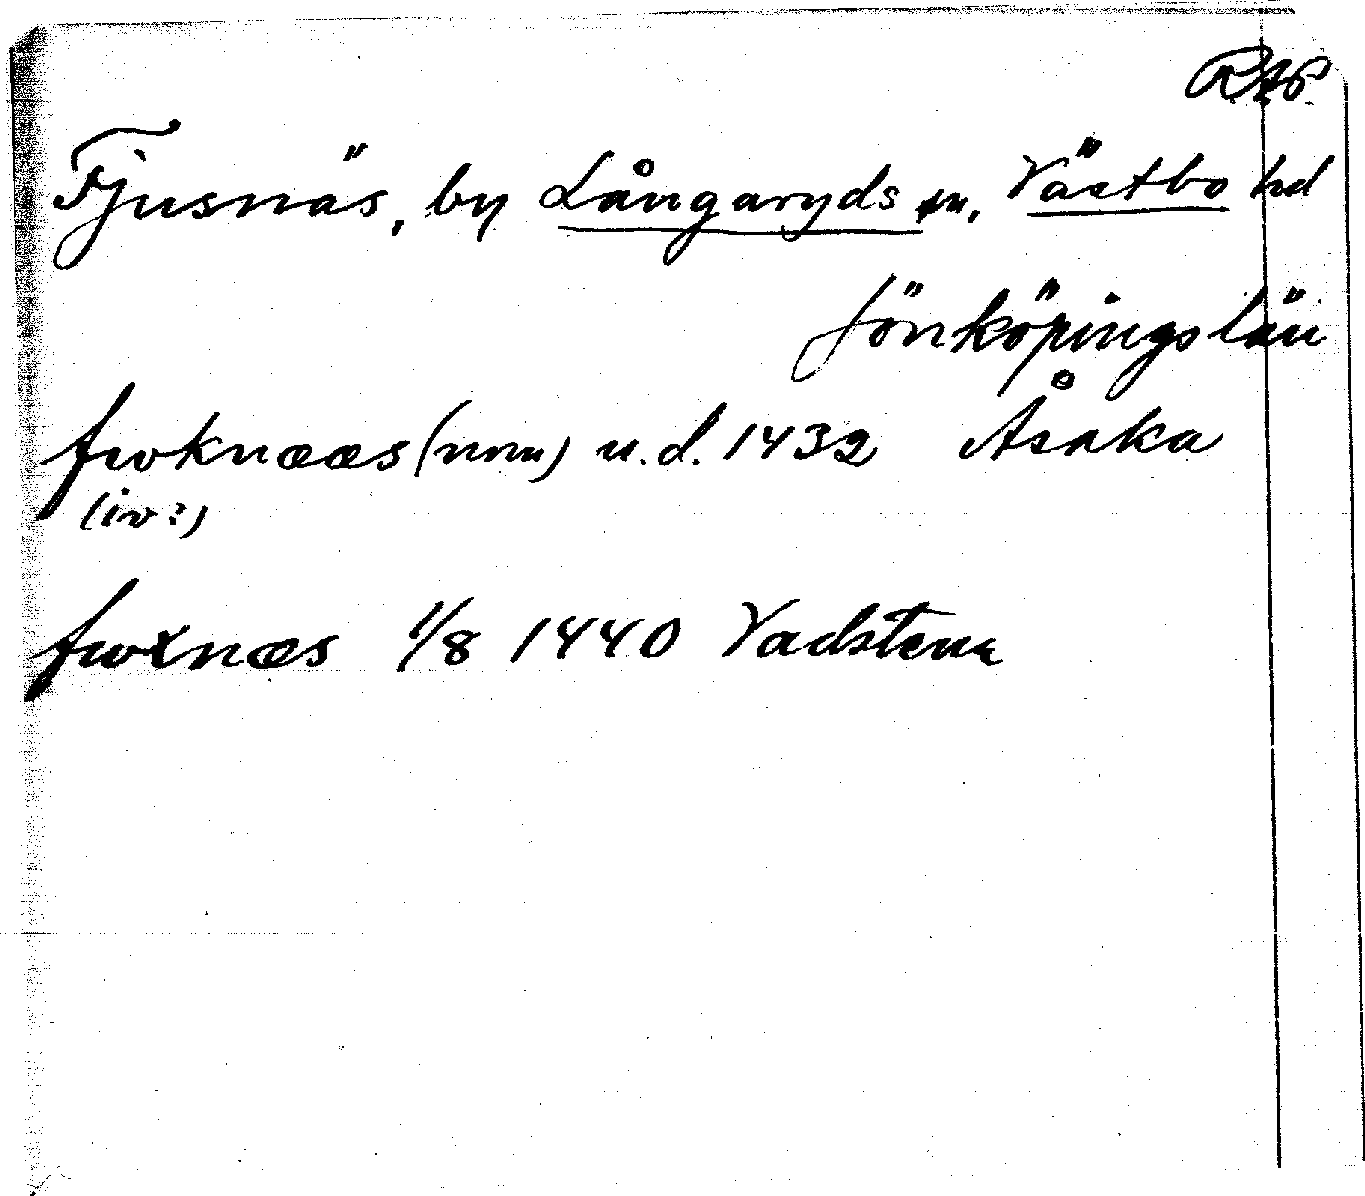 RAP
Fjusnäs, by Långaryds sn, Västbo hd
Jönköpings län
fwoknææs (nom) u.d. 1432 Åsaka
(iv?)
fwoxnæs 1/8 1440 Vadstena